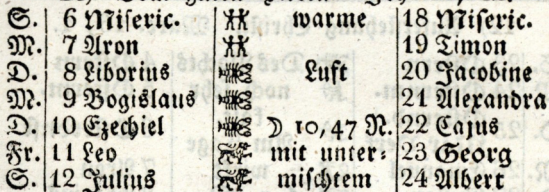 S. 6 Miseric. warme 18 Miseric.
M. 7 Aron 19 Timon
D. 8 Liborius Luft 20 Jacobine
M. 9 Bogislaus 21 Alexandra
D 10 Ezechiel ☽ 10/47 N. 22 Cajus
Fr. 11 Leo mit unter⸗ 23 Georg
S. 12 Julius mischtem 24 Albert